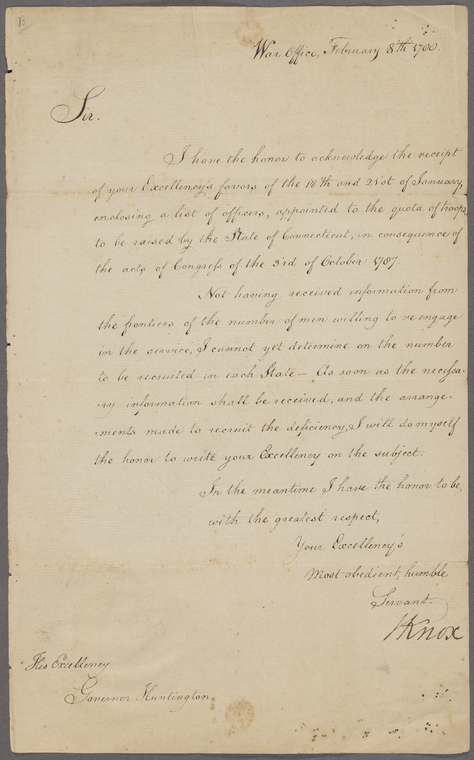 13
War Office, February 8th 1788.
Sir.
I have the honor to acknowledge the receipt
of your Excellency's favors of the 18th and 21st of January,
enclosing a list of officers, appointed to the quota of troops
to be raised by the State of Connecticut, in consequence of
the acts of Congress of the 3rd of October 1787.
Not having received information from
the frontiers of the number of men willing to re engage
in the service, I cannot yet determine on the number
to be recruited in each State — As soon as the necessa-
ry information shall be received, and the arrange-
ments made to recruit the deficiency, I will do myself
the honor to write your Excellency on the subject.
In the meantime I have the honor to be,
with the greatest respect,
Your Excellency's
Most obedient, humble
Servant.
HKnox
His Excellency
Governor Huntington